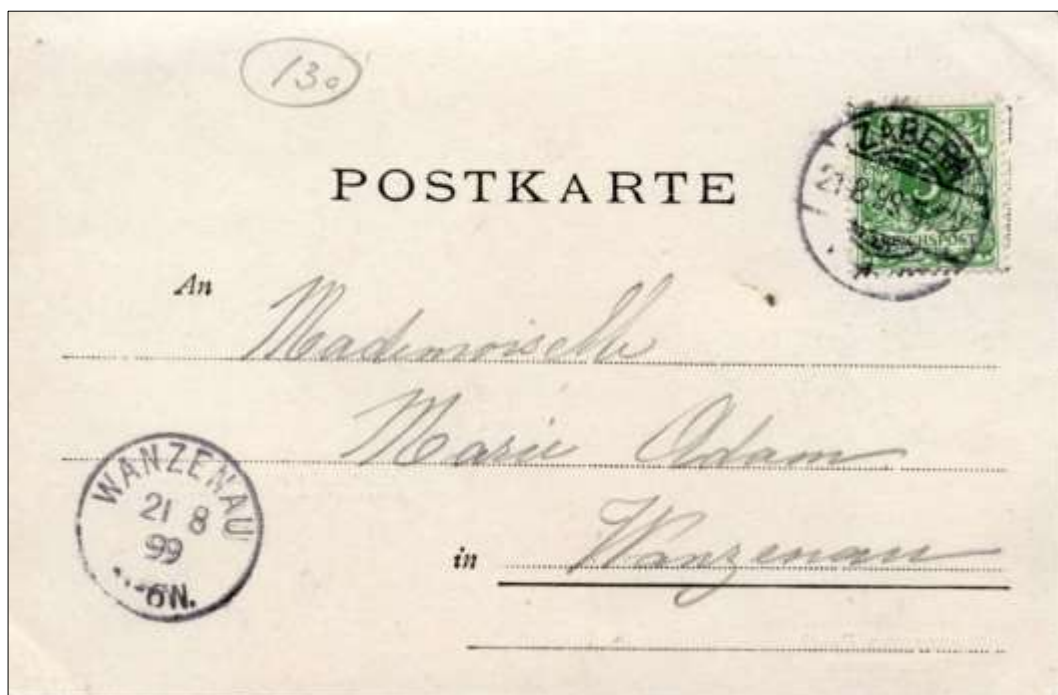 130
POSTKARTE
ZABERN
21.8.99
5
REICHSPOST
An
Mademoiselle
Marie Adam
WANZENAU
21 8
99
6N.
in
Wanzenau